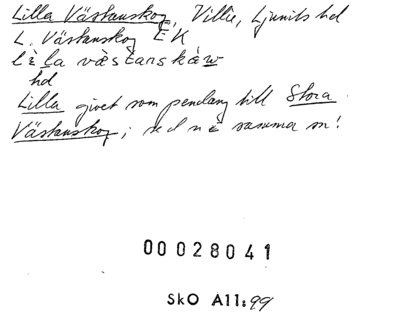 Lilla Västanskog, Villie, Ljunits hd
L. Västanskog EK
lela västanskåw
hd
Lilla givet som pendang till Stora
Västanskog; samma sn!
00028041
SkO A11:99